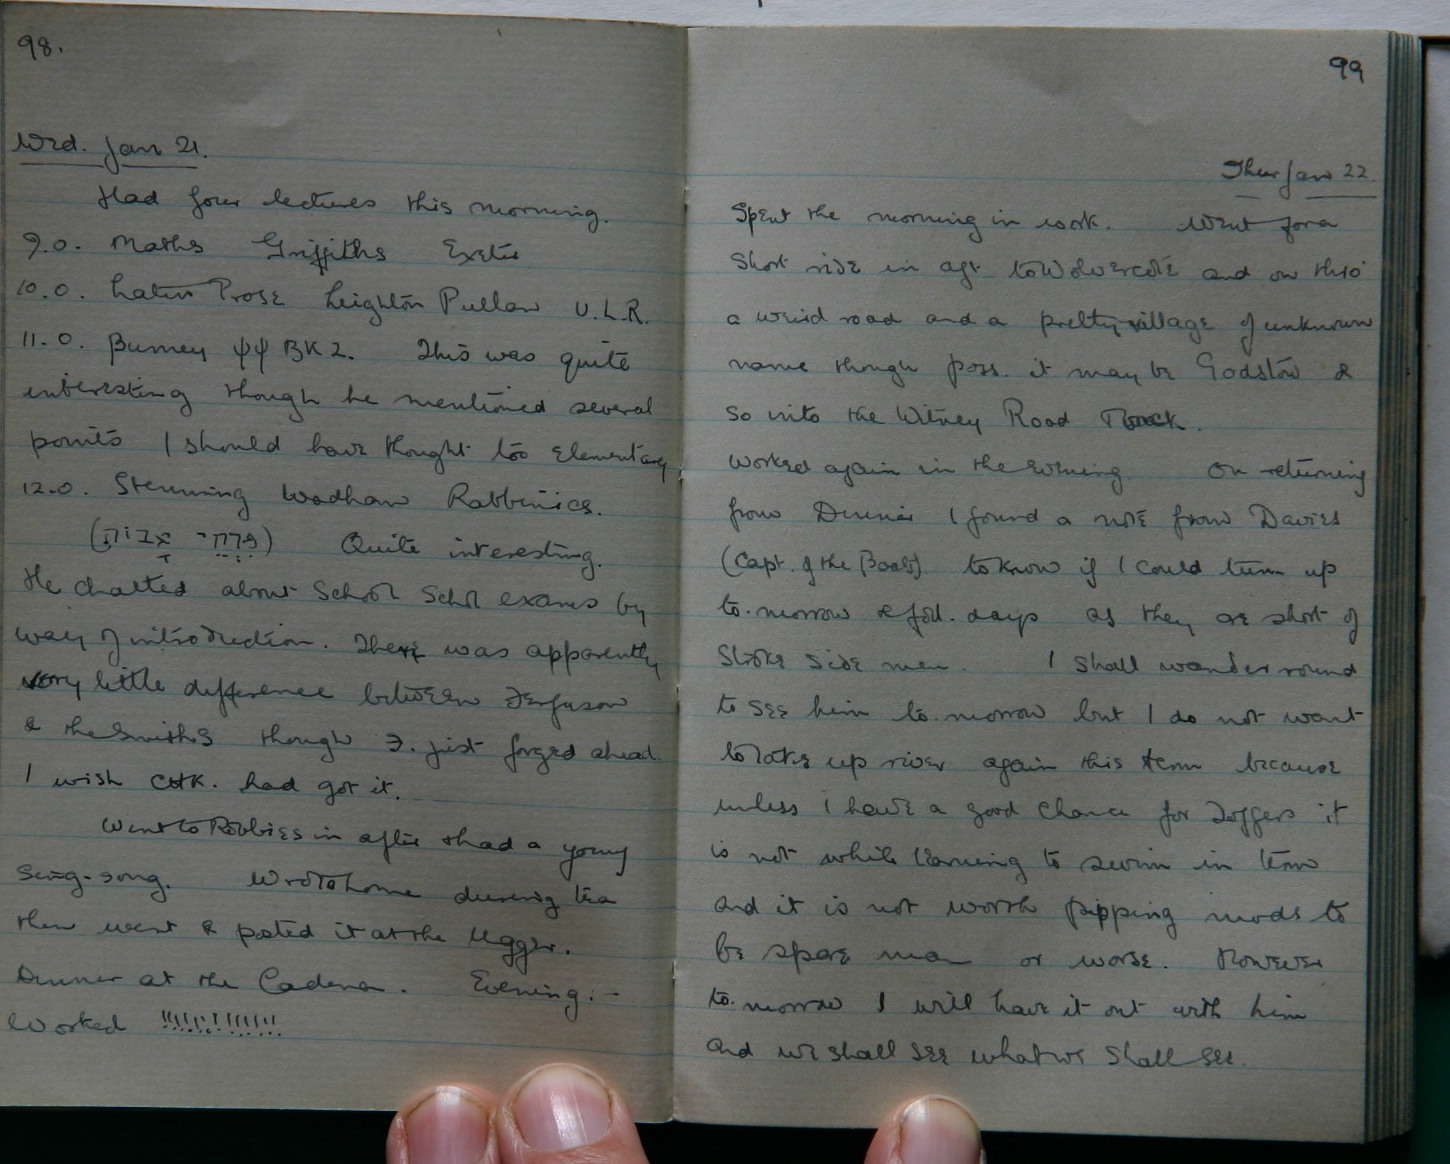 98.
Wed. Jan 21.
Had four lectures this morning.
9.0. Maths Griffiths Exeter
10.0. Latin Prose Leighton Pullan U.L.R.
11.0. Burney ψψ BK 2. This was quite
interesting though he mentioned several
points I should have thought too elementary
12.0. Stenning Wadham Rabbinics.
(פרקי אבות) Quite interesting.
He chatted about School Schol exams by
way of introduction. There was apparently
very little difference between Ferguson
& the Smiths though F. just forged ahead.
I wish CHK. had got it.
Went to Robbies in after & had a young
sing-song. Wrote home during tea
then went & posted it at the Ugger.
Dinner at the Cadena. Evening:-
Worked !!!!!!!!!!!!
99
Thur Jan 22
Spent the morning in work. Went for a
short ride in aft to Wolvercote and on thro'
a weird road and a pretty village of unknown
name though poss. it may be Godstow &
so into the Witney Road back.
Worked again in the evening. On returning
from Dinner I found a note from Davies
(Capt. of the Boats) to know if I could turn up
to.morrow & foll. days as they are short of
stroke side men. I shall wander round
to see him to.morrow but I do not want
to take up river again this term because
unless I have a good chance for Toggers it
is not while learning to swim in time
and it is not worth pipping mods to
be spare man or worse. However
to.morrow I will have it out with him
and we shall see what we shall see.